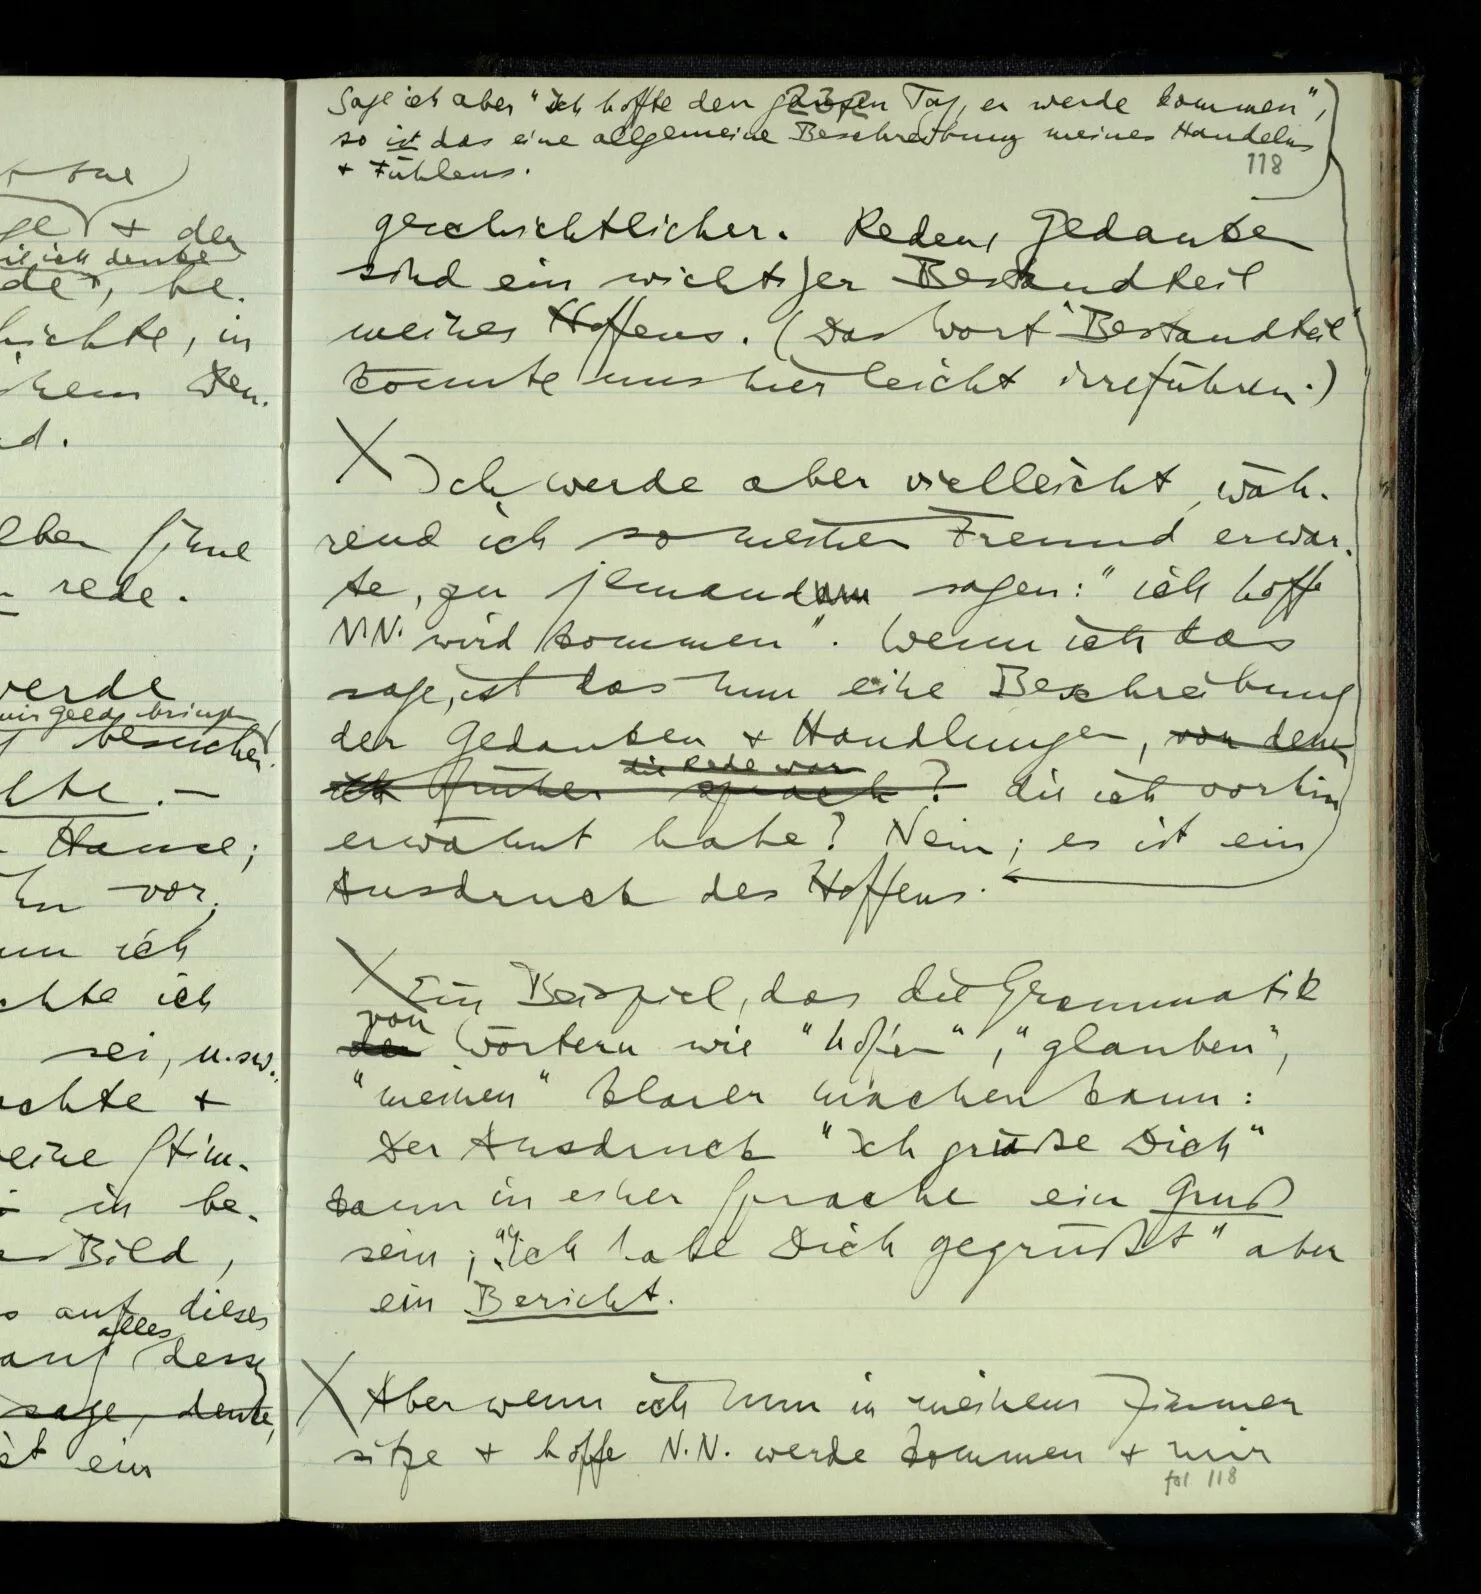 + der
il ich denke
de", be-
hichte, in
d.
eben
rede.
werde
mir Geld bringen
besuchen
chte. —
Hause;
hn vor,
ich
chte ich
sei, u.s.w.
achte +
eine Stim-
in be-
Bild,
auf dieses
alles
auf dessen
sage, denke,
ist ein
Sage ich aber "Ich hoffte den ganzen Tag, er werde kommen",
so ist das eine allgemeine Beschreibung meines Handelns
+ Fühlens.
118
geschichtlicher. Reden, Gedanken
sind ein wichtiger Bestandteil
meines Hoffens. (Das Wort "Bestandteil"
könnte uns hier leicht irreführen.)
Ich werde aber vielleicht, wäh-
rend ich so meinen Freund erwar-
te, zu jemandem sagen: "ich hoffe
N.N. wird kommen". Wenn ich das
sage, ist das nun eine Beschreibung
der Gedanken + Handlungen, von denen
die Rede war
ich früher sprach? die ich vorhin
erwähnt habe? Nein; es ist ein
Ausdruck des Hoffens.
Ein Beispiel, das die Grammatik
von
der Wörtern wie "hoffen", "glauben",
"meinen" klarer machen kann:
Der Ausdruck "Ich grüße Dich"
kann in einer Sprache ein Gruß
sein; "Ich habe Dich gegrüßt" aber
ein Bericht.
Aber wenn ich nun in meinem Zimmer
sitze + hoffe N.N. werde kommen + mir
fol 118